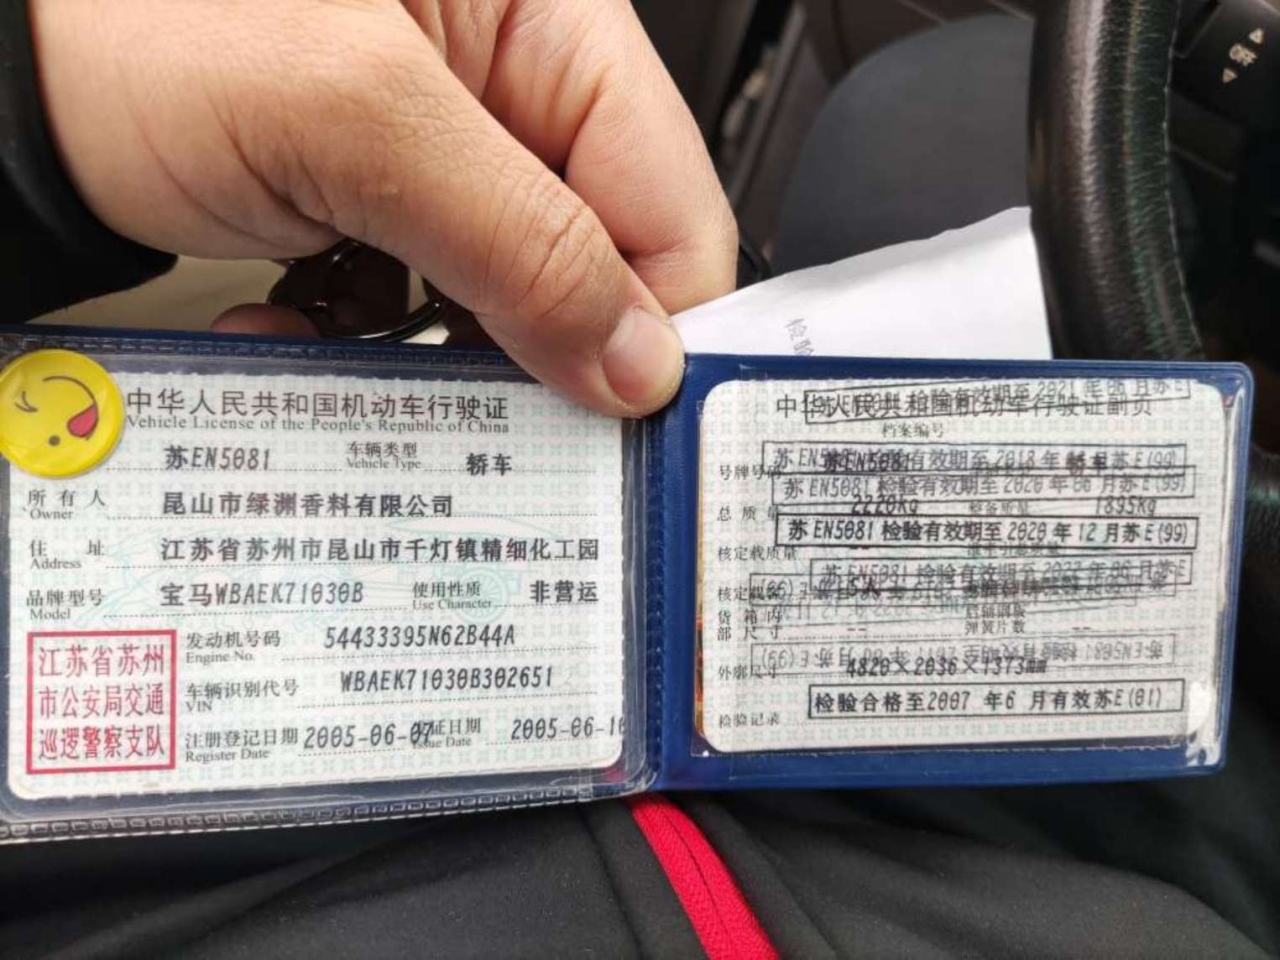 中华人民共和国机动车行驶证
Vehicle License of the People's Republic of China
苏EN5081 车辆类型 Vehicle Type 轿车
所有人 Owner 昆山市绿渊香料有限公司
住址 Address 江苏省苏州市昆山市千灯镇精细化工园
品牌型号 Model 宝马WBAEK71030B 使用性质 Use Character 非营运
江苏省苏州
市公安局交通
巡逻警察支队
发动机号码 Engine No. 54433395N62B44A
车辆识别代号 VIN WBAEK71030B302651
注册登记日期 Register Date 2005-06-07 Issue Date 2005-06-1
检验有效期至2021年06月苏E
中华人民共和国机动车行驶证副页
档案编号
号牌号码 苏EN5081 轿车
苏EN5081 检验有效期至2018年 苏E(99)
苏EN5081 检验有效期至2020年06月苏E(99)
总质量 2220kg 整备质量 1895kg
苏EN5081 检验有效期至2020年12月苏E(99)
核定载质量 --
苏EN5081 检验有效期至2022年06月苏E
核定载 5人
货箱内
部尺寸 -- 弹簧片数 --
外廓尺寸 4820×2036×1373mm
检验记录 检验合格至2007年6月有效苏E(01)
OFF